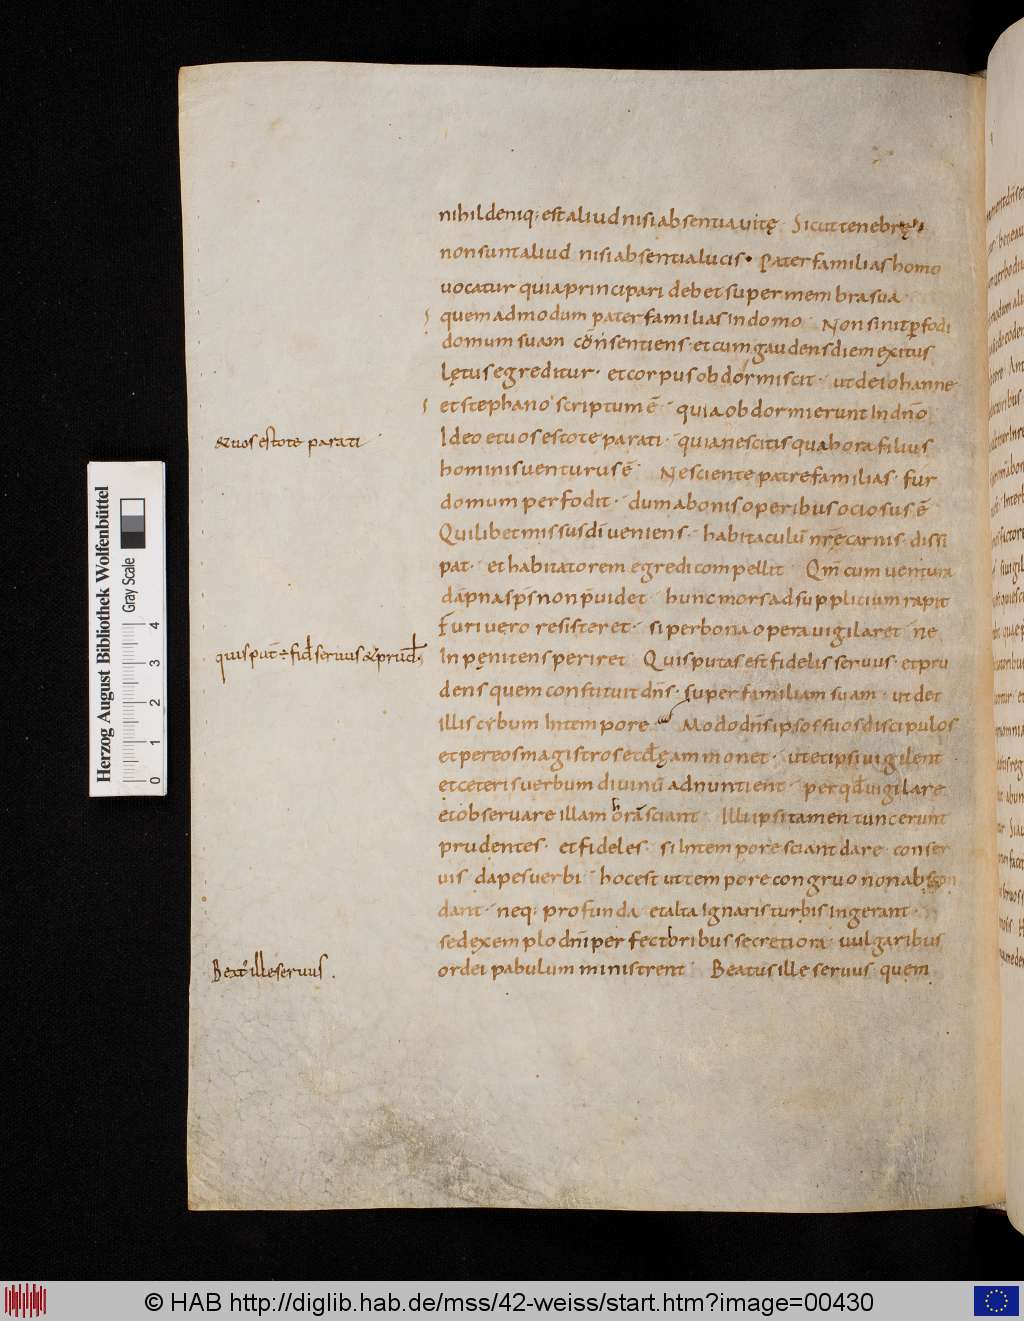 nihil deniq; est aliud nisi absentia uitę Sicut tenebrę
non sunt aliud nisi absentia lucis. Pater familias homo
uocatur quia principari debet super membra sua.
quem ad modum pater familias In domo. Non sinit perfodi
domum suam consentiens. et cum gaudens diem exitus
lętus egreditur. et corpus obdormiscit. ut de iohanne
et stephano scriptum ē quia obdormierunt In dn̄o
&uos estote parati
Ideo et uos estote parati. quia nescitis qua hora filius
hominis uenturus ē Nesciente patre familias fur
domum perfodit. dum a bonis operibus ociosus ē
Quilibet missus di ueniens. habitaculū nr̄e carnis dissi
pat. et habitatorem egredi compellit Qm̄ cum uentura
dāpna sp̄s non p̄uidet hunc mors ad supplicium rapit
Furi uero resisteret. si per bona opera uigilaret ne
quis put̄ ÷ fid̄ seruus & prud̄.
In pęnitens periret Quis putas est fidelis seruus. et pru
dens quem constituit dn̄s. super familiam suam. ut det
illis cybum In tempore Modo dn̄s ipsos suos discipulos
et per eos magistros et d̄ ęammonet. ut et ipsi uigilent
et ceteris uerbum diuinū adnuntient. per qd̄ uigilare
et obseruare illam horā sciant Illi ipsi tamen tunc erunt
prudentes. et fideles. si In tempore sciant dare conser
uis dapes uerbi hoc est ut tempore congruo non abscon
dant. neq; profunda et alta Ignaris turbis ingerant.
sed exemplo dn̄i perfectioribus secretiora. uulgaribus
Beat' ille seruus.
ordei pabulum ministrent Beatus ille seruus quem
Herzog August Bibliothek Wolfenbüttel
Gray Scale
0 1 2 3 4
© HAB http://diglib.hab.de/mss/42-weiss/start.htm?image=00430